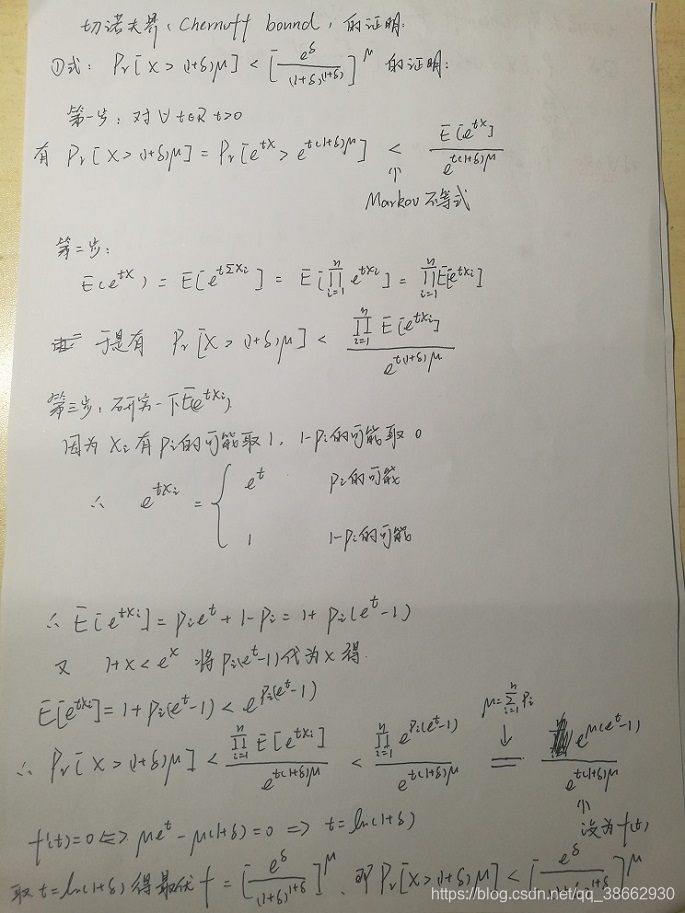 切诺夫界(Chernoff bound)的证明:
①式: Pr[X > (1+δ)μ] < [e^δ / (1+δ)^(1+δ)]^μ 的证明:
第一步: 对 ∀ t∈R t>0
有 Pr[X > (1+δ)μ] = Pr[e^{tX} > e^{t(1+δ)μ}] < E[e^{tX}] / e^{t(1+δ)μ}
↑
Markov 不等式
第二步:
E(e^{tX}) = E[e^{tΣXi}] = E[∏_{i=1}^{n} e^{tXi}] = ∏_{i=1}^{n} E[e^{tXi}]
于是有 Pr[X > (1+δ)μ] < ∏_{i=1}^{n} E[e^{tXi}] / e^{t(1+δ)μ}
第三步, 研究一下E(e^{tXi})
因为 Xi 有 Pi的可能取 1, 1-Pi的可能取 0
∴ e^{tXi} = { e^t Pi的可能
1 1-Pi的可能
∴ E[e^{tXi}] = Pi e^t + 1-Pi = 1 + Pi(e^t-1)
又 1+x < e^x 将 Pi(e^t-1)代为x得.
E[e^{tXi}] = 1+Pi(e^t-1) < e^{Pi(e^t-1)}
μ=∑_{i=1}^{n} Pi
↓
∴ Pr[X > (1+δ)μ] < ∏_{i=1}^{n} E[e^{tXi}] / e^{t(1+δ)μ} < ∏_{i=1}^{n} e^{Pi(e^t-1)} / e^{t(1+δ)μ} = e^{μ(e^t-1)} / e^{t(1+δ)μ}
↑
设为 f(t)
f'(t)=0 <=> μe^t - μ(1+δ) = 0 => t=ln(1+δ)
取 t=ln(1+δ) 得最优 f = [e^δ / (1+δ)^{1+δ}]^μ, 即 Pr[X > (1+δ)μ] < [e^δ / (1+δ)^{1+δ}]^μ
https://blog.csdn.net/qq_38662930